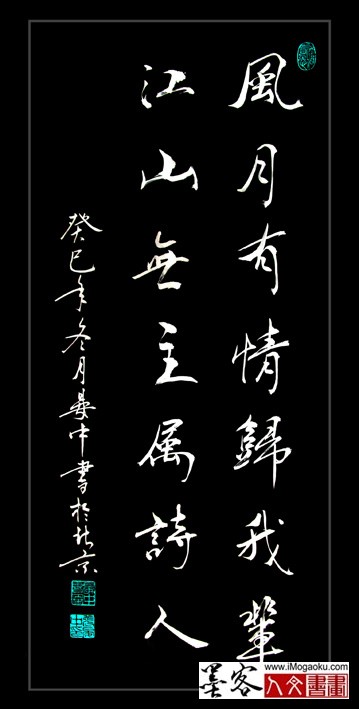 風月有情歸我輩
江山無主属詩人
癸巳年冬月中書於北京
墨客
www.iMogaoku.com
人文書畫